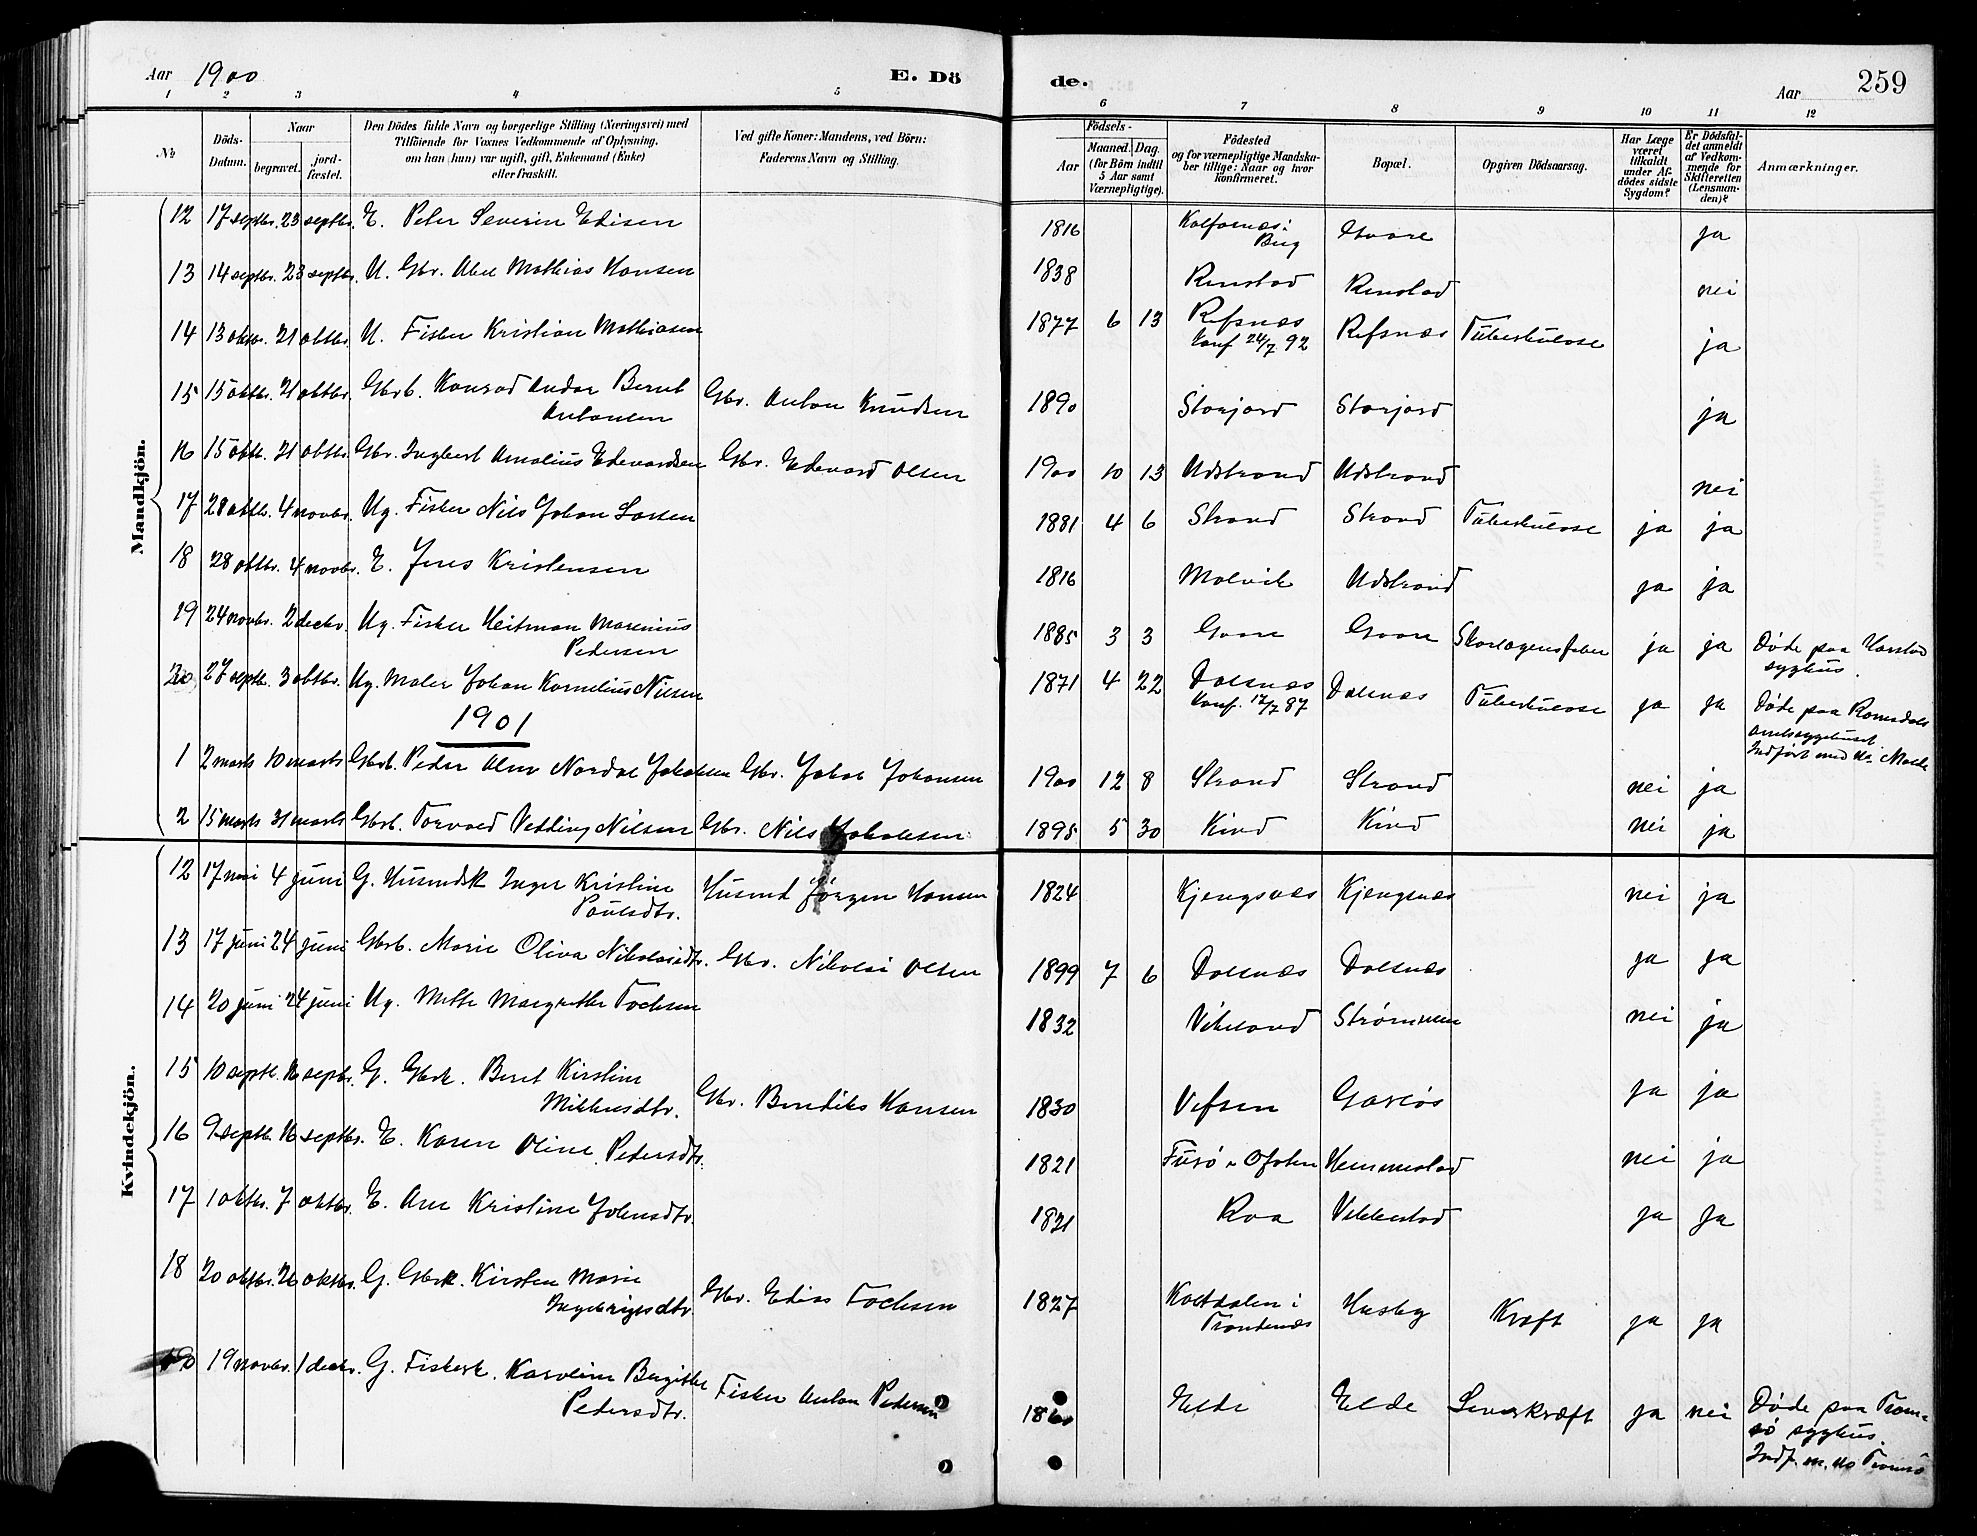 Aar 1900 E. Dö de. Aar 259
1 2 3 4 5 6 7 8 9 10 11 12
No
Döds-Datum.
Naar
begravet.
jord-fæstet.
Den Dödes fulde Navn og borgerlige Stilling (Næringsvei) med
Tilföiende for Voxnes Vedkommende af Oplysning,
om han (hun) var ugift, gift, Enkemand (Enke)
eller fraskilt.
Ved gifte Koner: Mandens, ved Börn:
Faderens Navn og Stilling.
Födsels-
Aar
Maaned. Dag.
(for Börn indtil
5 Aar samt
Værnepligtige).
Födested
og for værnepligtige Mandska-
ber tillige: Naar og hvor
konfirmeret.
Bopæl.
Opgiven Dödsaarsag.
Har Læge
været
tilkaldt
under Af-
dödes sidste
Sygdom?
Er Dödsfal-
det anmeldt
af Vedkom-
mende for
Skifteretten
(Lensman-
den)?
Anmærkninger.
Mandkjön.
12 17 septbr. 23 septbr. E. Peter Severin Edisen 1816 Kalfarnæs i Gaare ja
Berg
13 14 septbr. 23 septbr. U. Gbr. Abel Mathias Hansen 1838 Renstad Renstad nei
14 13 oktbr. 21 oktbr. U. Fisker Kristian Mathiasen 1877 6 13 Refsnæs Refsnæs Tuberkulose ja
konf 24/7 92
15 15 oktbr. 21 oktbr. Gbrb. Konrad Andor Bernt Gbr. Anton Knudsen 1890 Storjord Storjord ja
Antonsen
16 15 oktb. 21 oktbr. Gbr. Ingbert Amalius Edevardsen Gbr. Edevard Olsen 1900 10 13 Udstrand Udstrand nei
17 28 oktb. 4 novbr. Ug. Fisker Nils Johan Larsen 1881 4 6 Strand Strand Tuberkulose ja ja
18 28 oktbr. 4 novbr. E. Jens Kristensen 1816 Molvik Udstrand ja ja
19 24 novbr. 2 decbr. Ug. Fisker Heitman Marenius 1885 3 3 Gaare Gaare Skarlagensfeber ja ja Døde paa Harstad
Pedersen sygehus.
20 27 septb. 3 oktbr. Ug. Maler Johan Kornelius Nilsen 1871 4 22 Dalsnæs Dalsnæs Tuberkulose ja ja Døde paa Romsdals
konf. 17/7 87 amtssygehuset
Indført med No i Molde
1901
1 2 marts 10 marts Gbrb. Peder Alm Nordal Jakobsen Gbr. Jakob Johansen 1900 12 8 Strand Strand nei ja
2 15 marts 31 marts Gbrb. Torvald Vedding Nilsen Gbr. Nils Jakobsen 1895 5 30 Kind Kind nei ja
Kvindekjön.
12 17 mai 4 juni G. Husmdsk Inger Kristine Husmd Jørgen Hansen 1824 Kjengsnæs Kjengsnæs nei ja
Paulsdtr.
13 17 juni 24 juni Gbrb. Marie Oliva Nikolaisdtr. Gbr. Nikolai Olsen 1899 7 6 Dalsnæs Dalsnæs ja ja
14 20 juni 24 juni Ug. Mette Margrethe Tochsen 1832 Vikeland Strømmen nei ja
15 10 septb. 16 septbr. G. Gbrk. Beret Kirstine Gbr. Bendiks Hansen 1830 Vefsen Garsløs ja ja
Mikkelsdtr.
16 9 septb. 16 septbr. E. Karen Oline Pedersdtr. 1821 Fusö i Ofoten Hemmestad nei ja
17 1 oktbr. 7 oktbr. E. Ane Kristine Johnsdtr. 1821 Roa Vikkestad ja ja
18 20 oktbr. 26 oktbr. G. Gbrk. Kirsten Marie Gbr. Edias Tochsen 1827 Kaltdalen i Husby Kræft ja ja
Ingebrigtsdtr. Trondenæs
19 19 novbr. 1 decbr. G. Fiskerk. Karoline Birgitte Fisker Anton Pedersen 1860 Elde Elde Leverkræft ja nei Døde paa Trom-
Pedersdtr. sö sygehus.
Indf. m. No Tromsö